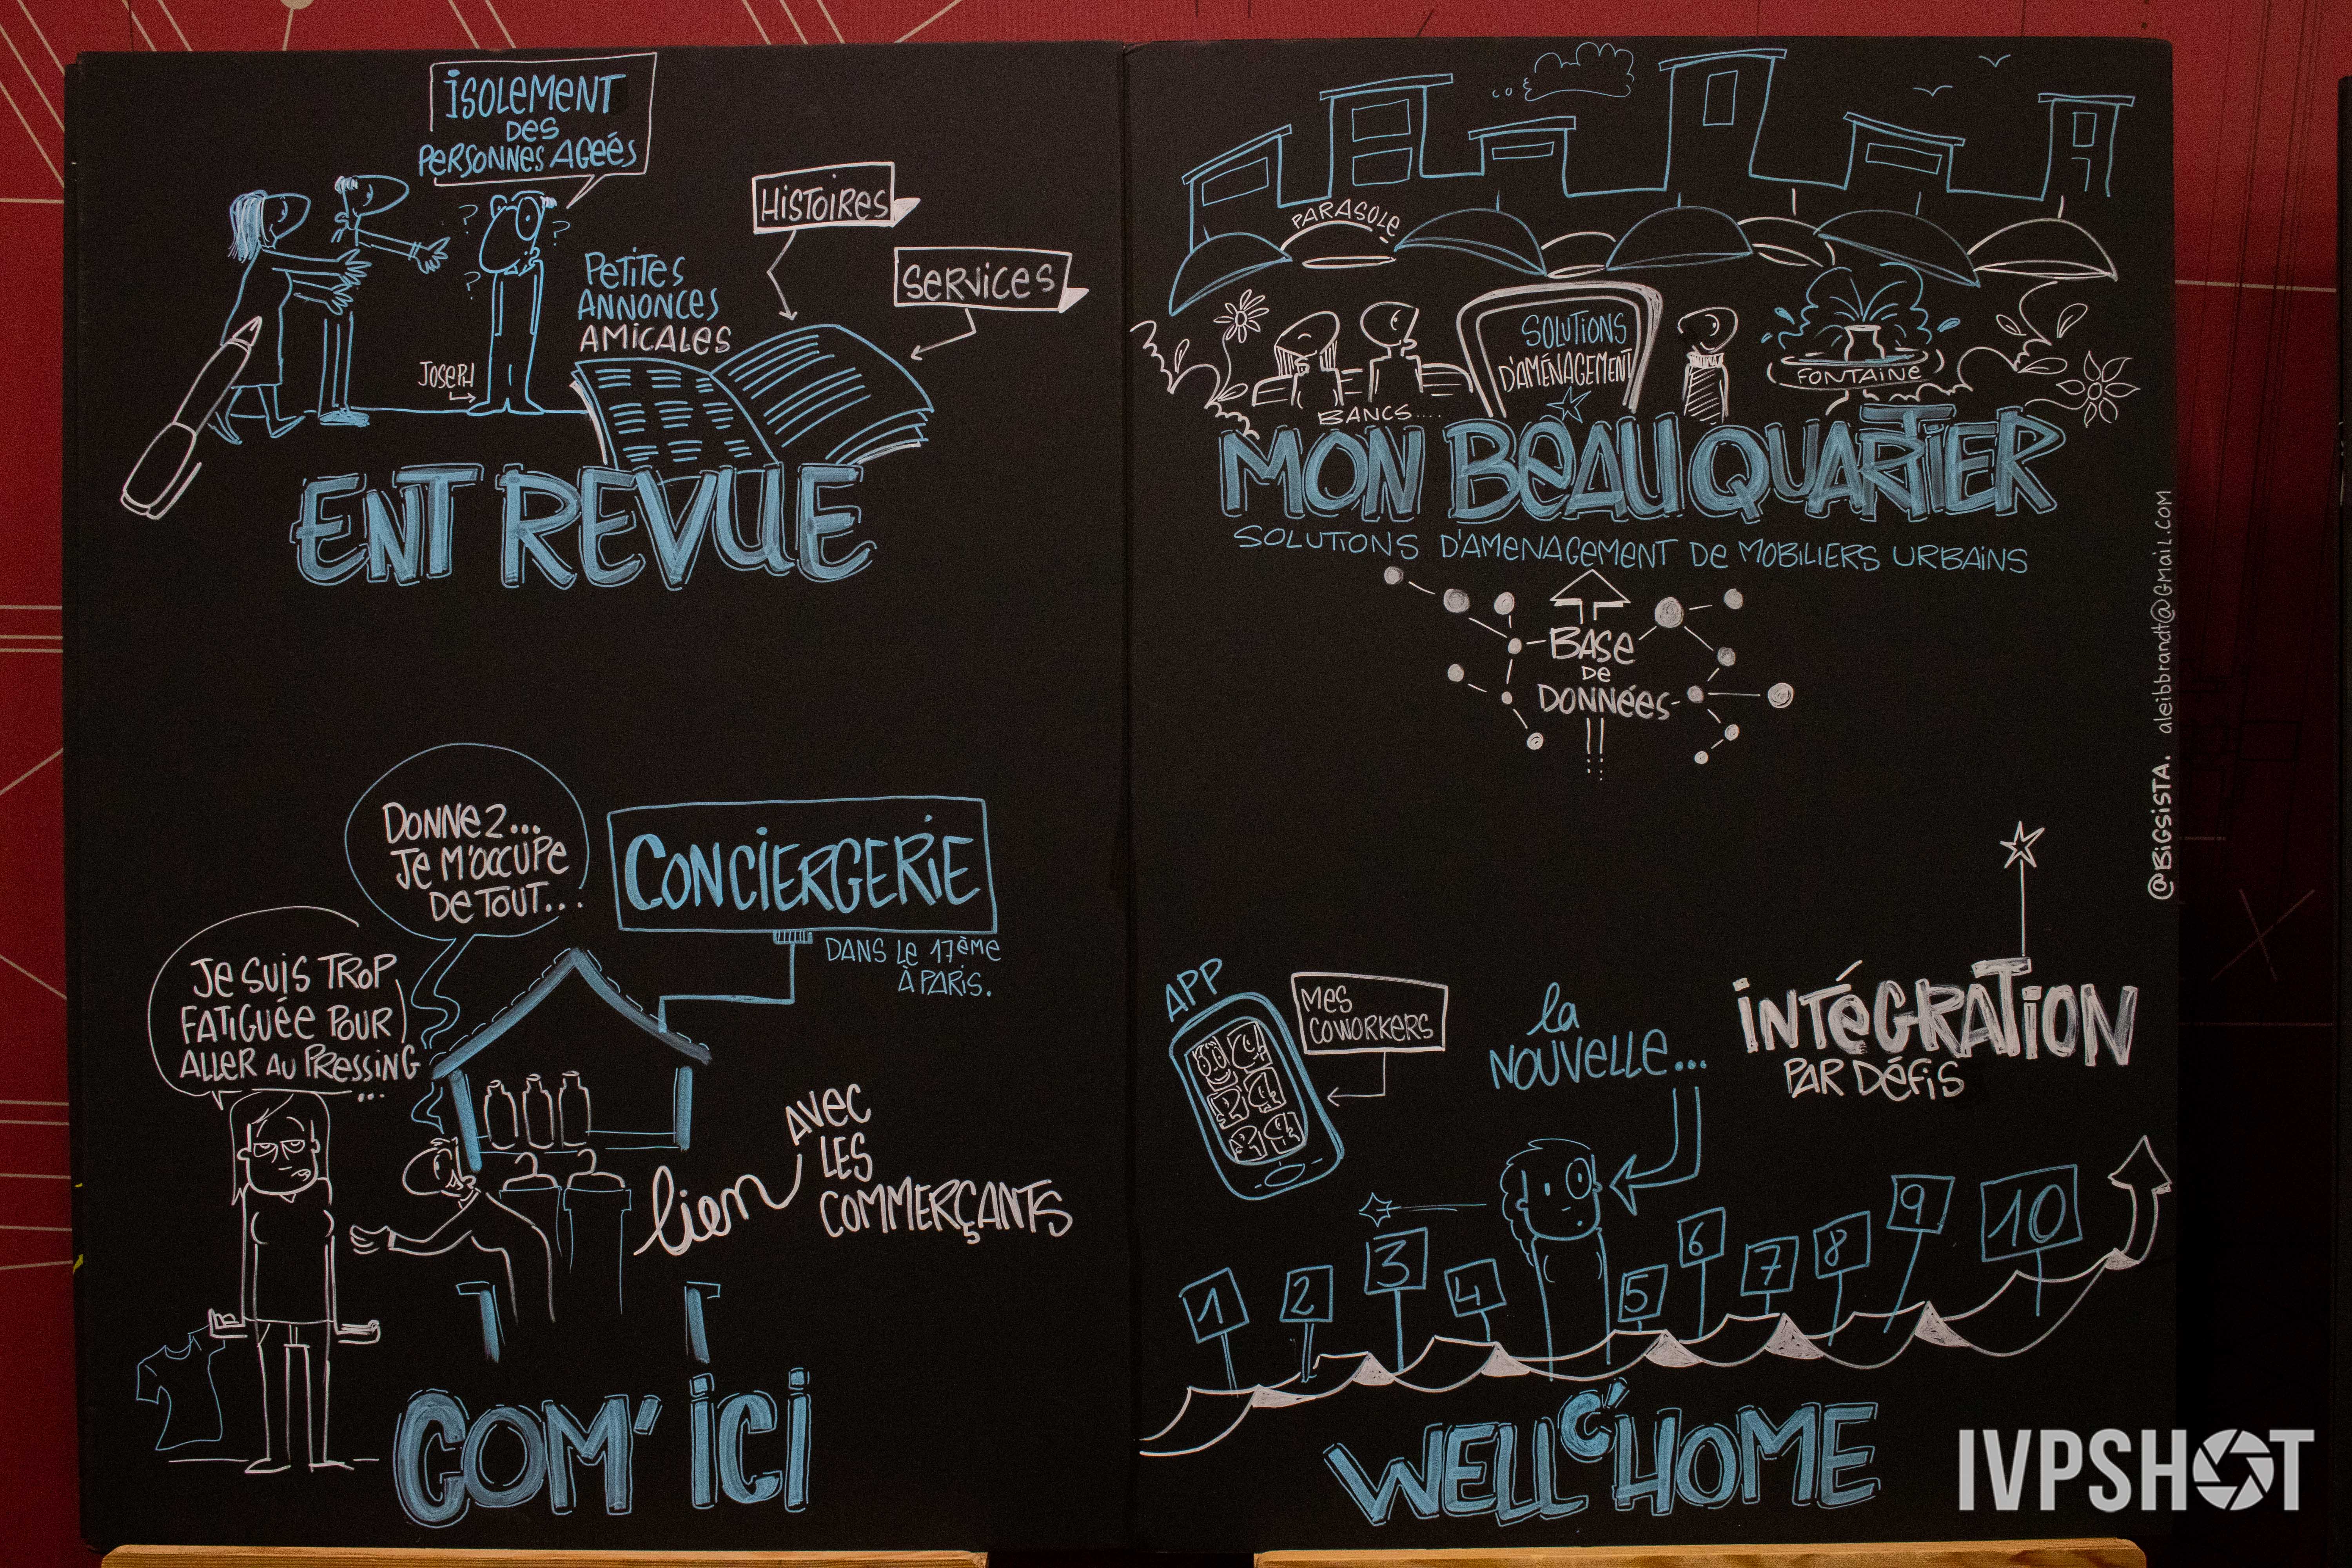 ISOLEMENT
DES
PERSONNES AGEÉS
HISTOIRES
SERVICES
PETITES
ANNONCES
AMICALES
JOSEPH
?
?
?
ENT REVUE
PARASOLE
SOLUTIONS
D'AMÉNAGEMENT
BANCS....
FONTAINE
MON BEAU QUARTIER
SOLUTIONS D'AMENAGEMENT DE MOBILIERS URBAINS
BASE
DE
DONNÉES
DONNEZ...
JE M'OCCUPE
DE TOUT...
CONCIERGERIE
DANS LE 17ÈME
À PARIS.
JE SUIS TROP
FATIGUÉE POUR
ALLER AU PRESSING
...
lien AVEC
LES
COMMERÇANTS
COM' ICI
APP
MES
COWORKERS
la
NOUVELLE...
INTÉGRATION
PAR DÉFIS
1
2
3
4
5
6
7
8
9
10
WELL C'HOME
@BIGSISTA. aleibbrandt@GMail.com
IVPSHOT